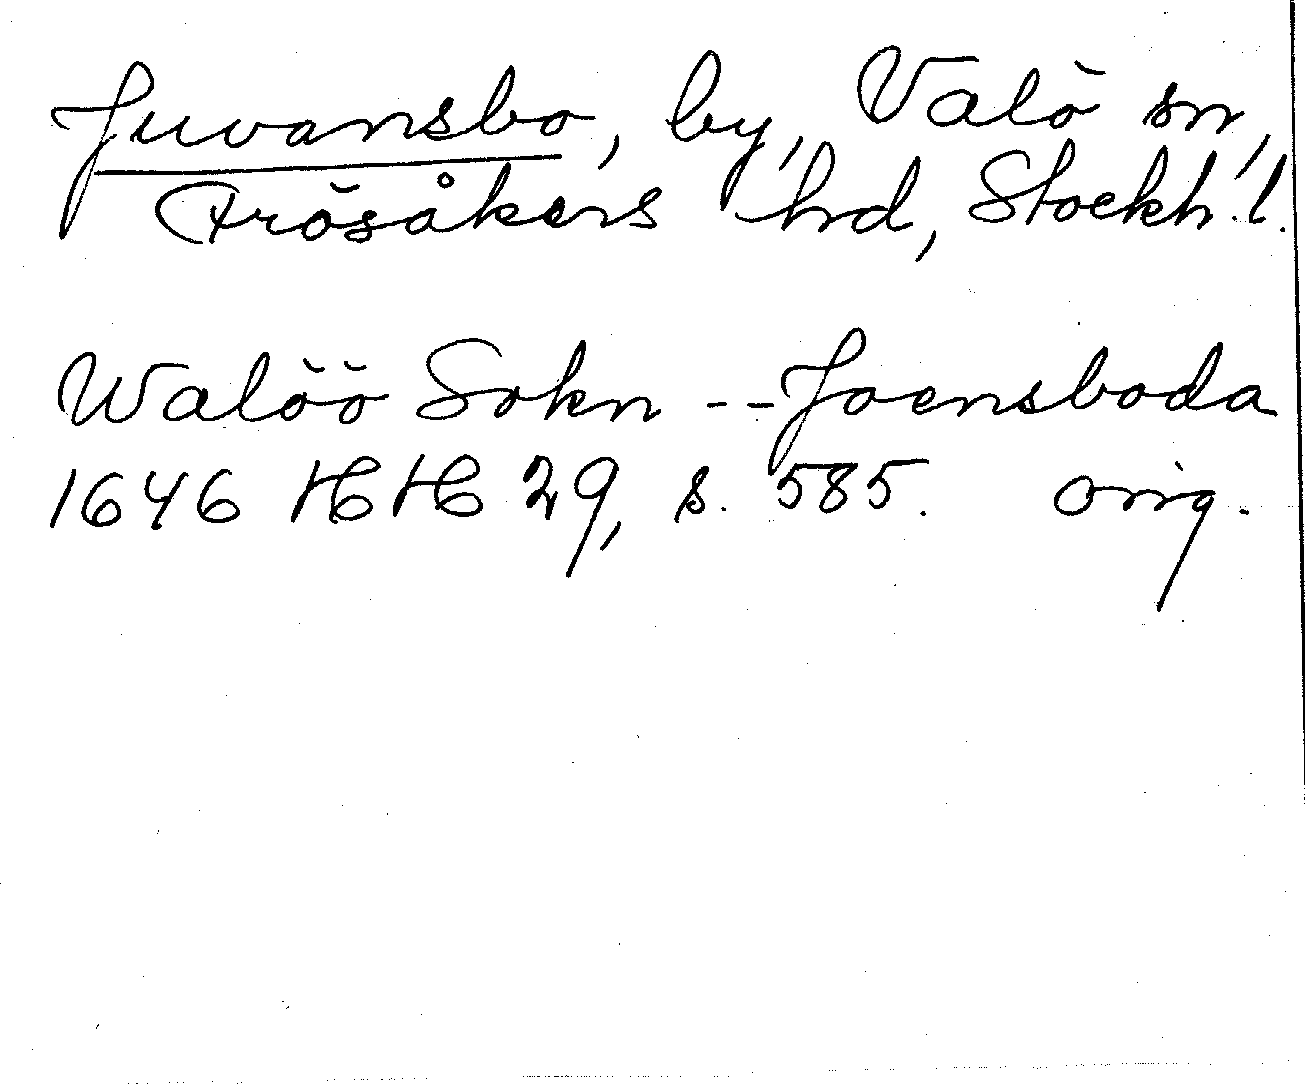 Juvansbo, by, Valö sn,
Frösåkers hrd, Stockh. l.
Walöö Sokn -- Joensboda
1646 HH 29, s. 585. orig.